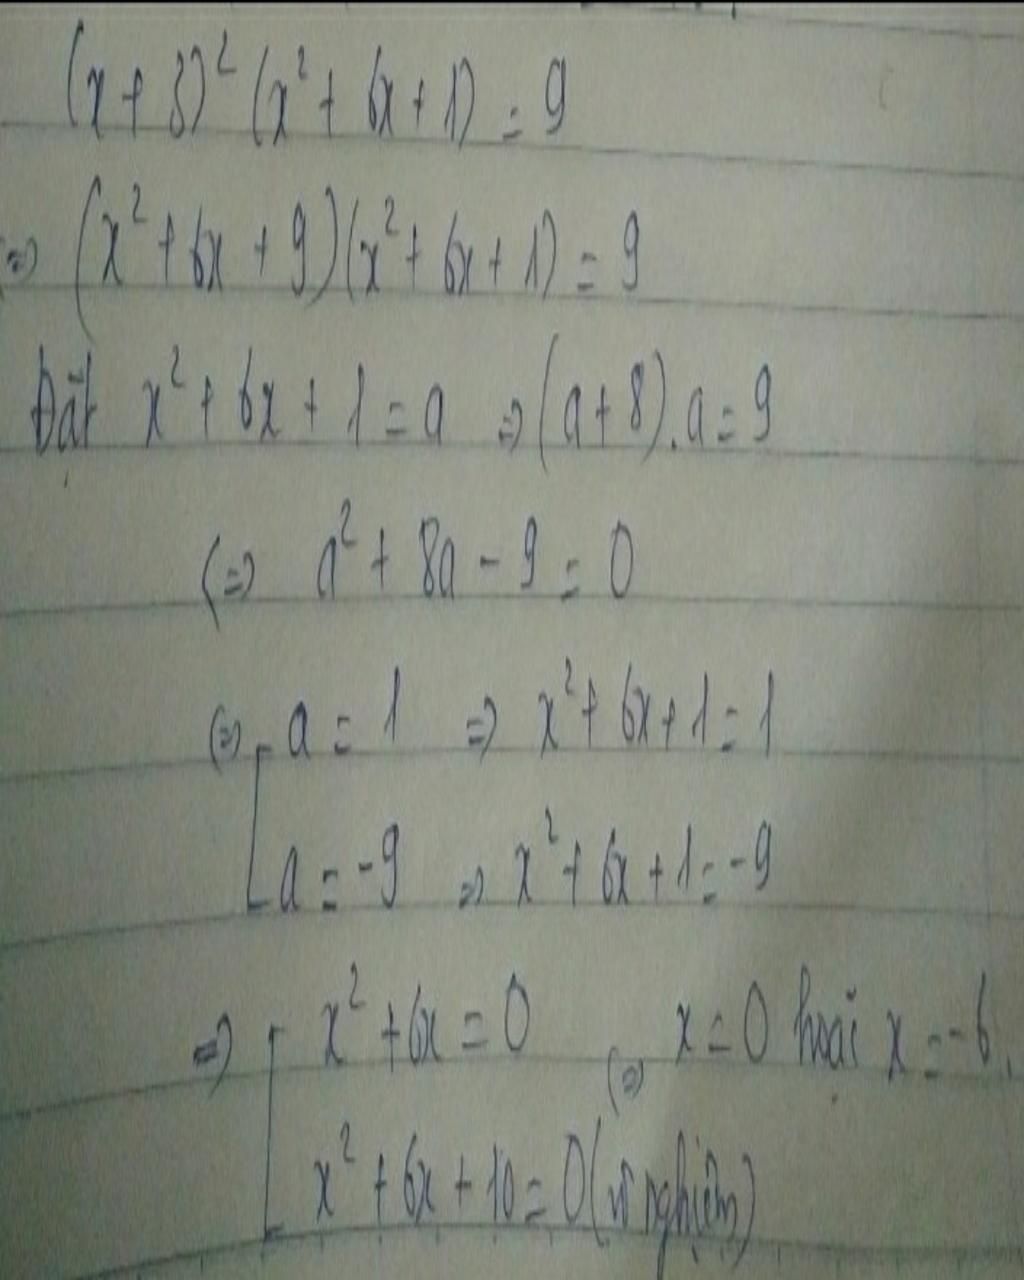 (x + 3)² (x² + 6x + 1) = 9
(=) (x² + 6x + 9)(x² + 6x + 1) = 9
Đặt x² + 6x + 1 = a => (a + 8).a = 9
(=) a² + 8a - 9 = 0
(=) [ a = 1 => x² + 6x + 1 = 1
a = -9 => x² + 6x + 1 = -9
=> [ x² + 6x = 0 (=) x = 0 hoặc x = -6.
x² + 6x + 10 = 0 (vô nghiệm)